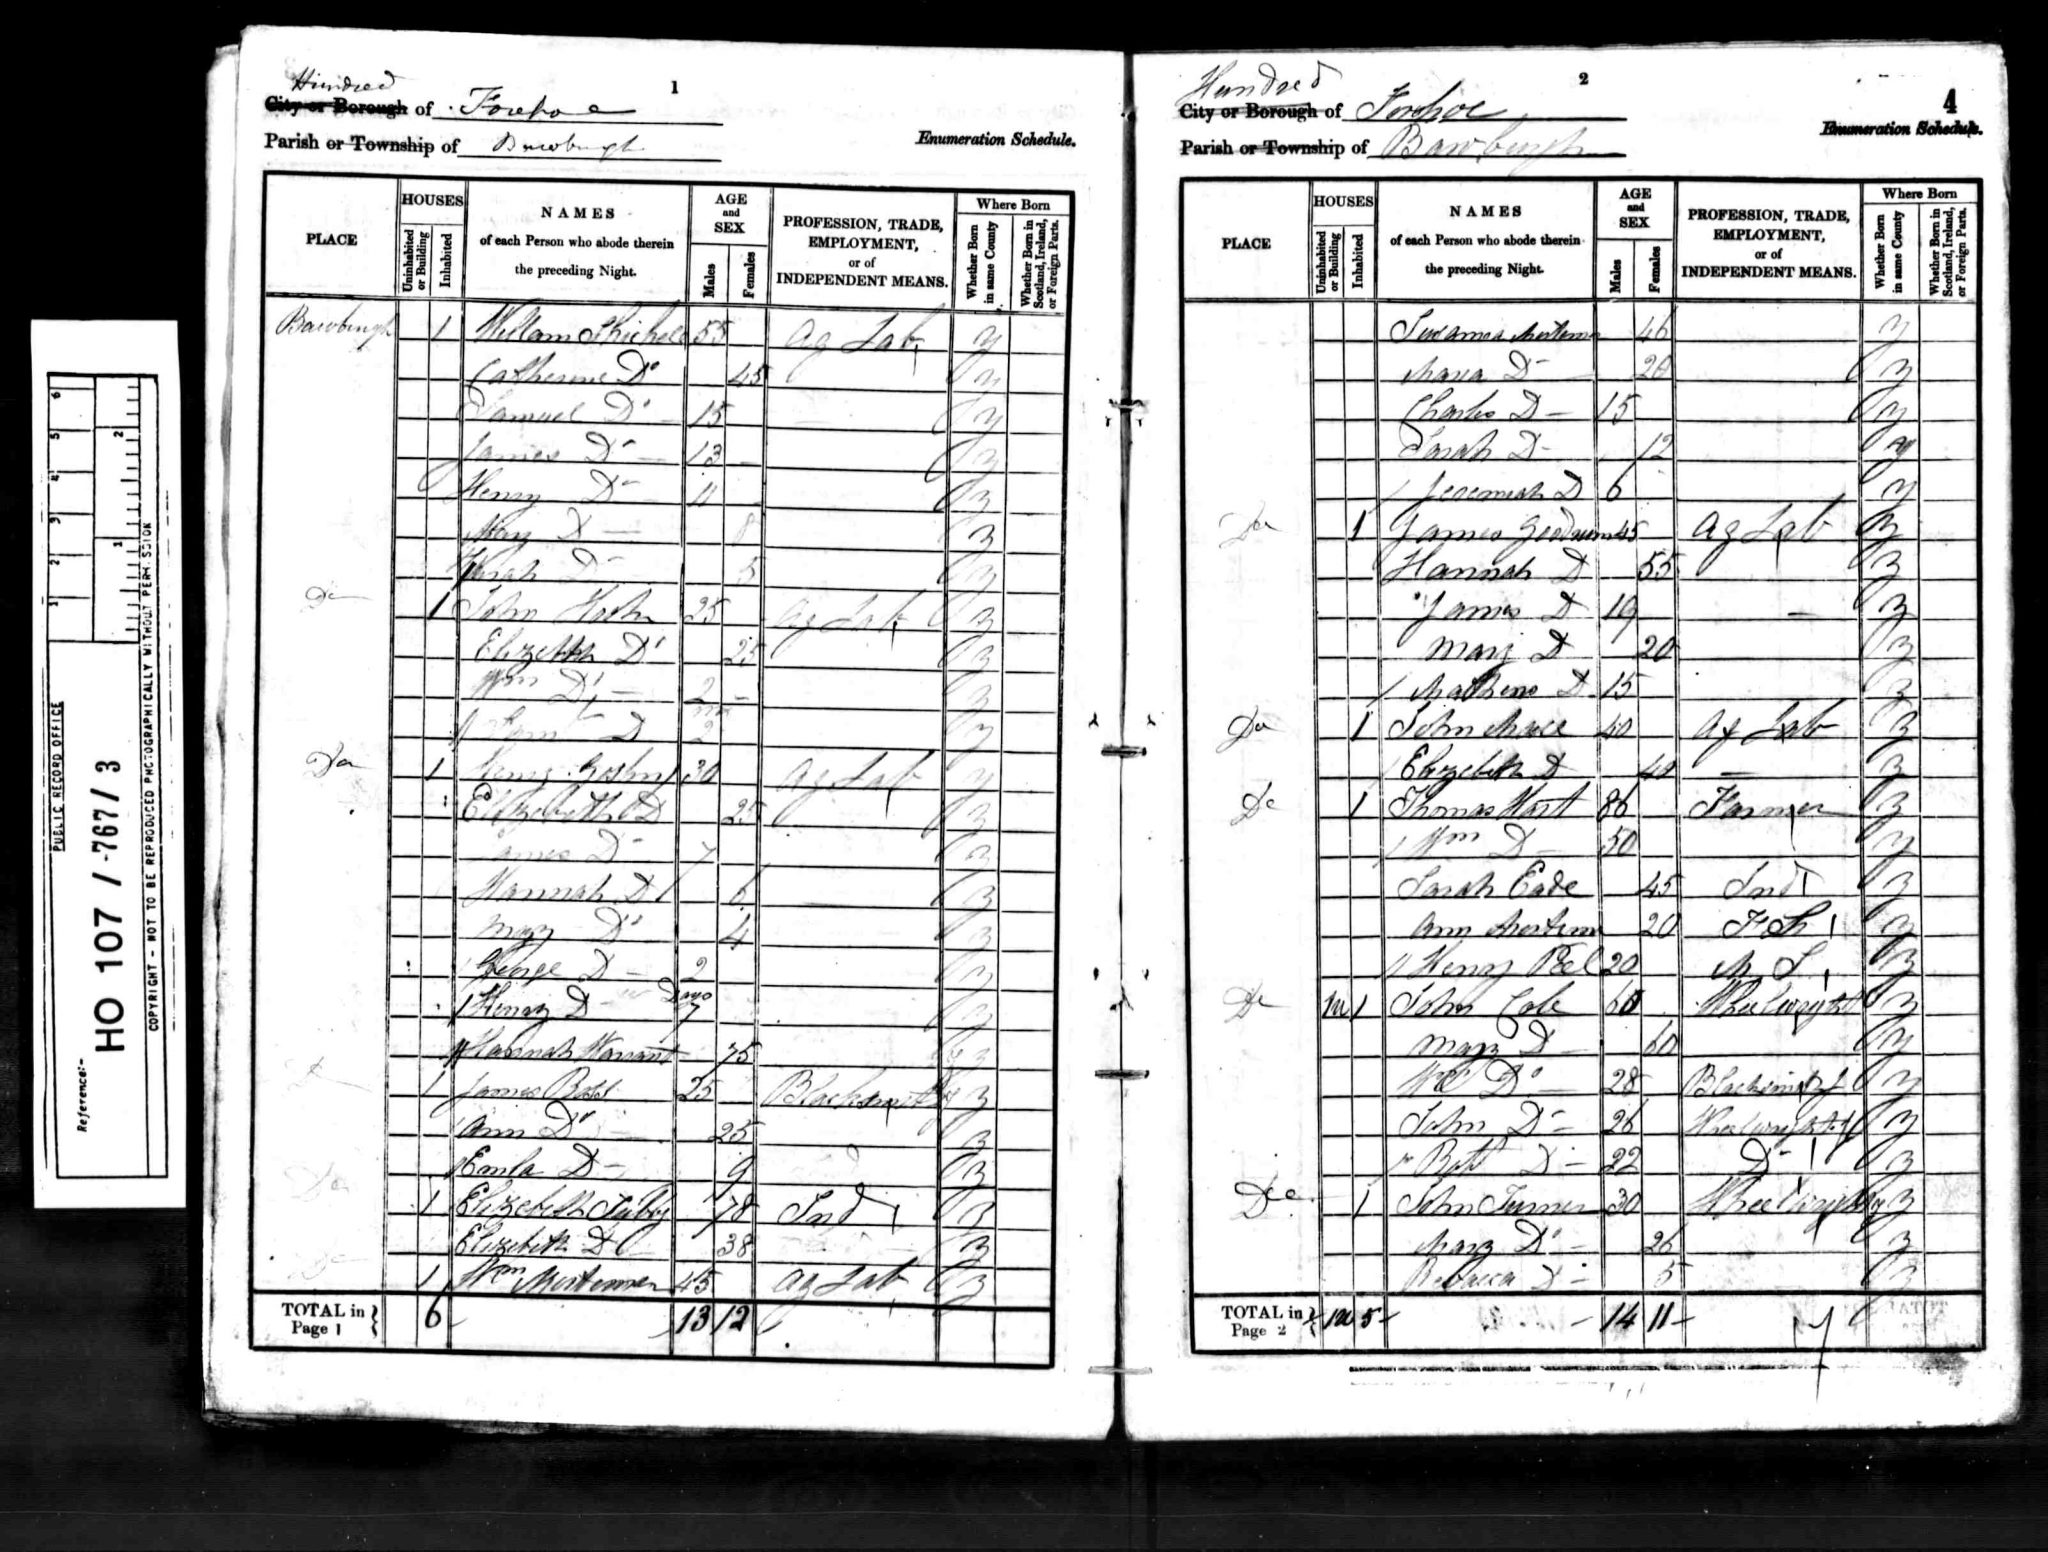 PUBLIC RECORD OFFICE
Reference:-
HO 107 / 767 / 3
COPYRIGHT - NOT TO BE REPRODUCED PHOTOGRAPHICALLY WITHOUT PERMISSION
1 2 3 4 5 6
1 2
Hundred
1
City or Borough of Forehoe
Parish or Township of Bawburgh
Enumeration Schedule.
PLACE
HOUSES
Uninhabited or Building
Inhabited
NAMES of each Person who abode therein the preceding Night.
AGE and SEX
Males
Females
PROFESSION, TRADE, EMPLOYMENT, or of INDEPENDENT MEANS.
Where Born
Whether Born in same County
Whether Born in Scotland, Ireland, or Foreign Parts.
Bawburgh 1 William 55 Ag Lab y
Catherine Do 45 y
Samuel Do 15 y
James Do 13 y
Henry Do 11 y
Mary D 8 y
Sarah D 5 y
Do 1 John 25 Ag Lab y
Elizabeth Do 25 y
Wm Do 2 y
D 2 y
Do 1 30 Ag Lab y
Elizabeth D 25 y
James D 7 y
Hannah D 6 y
Mary Do 4 y
George D 2 y
Henry D Days 7 y
Hannah 75 y
D 1 James 25 Blacksmith y
Ann Do 25 y
D 9 y
Do 1 Elizabeth Tubby 78 Ind y
Elizabeth D 38 y
Do 1 Wm Mortemer 45 Ag Lab y
TOTAL in Page 1 } 6 13 12
Hundred
2
4
City or Borough of Forehoe
Parish or Township of Bawburgh
Enumeration Schedule.
PLACE
HOUSES
Uninhabited or Building
Inhabited
NAMES of each Person who abode therein the preceding Night.
AGE and SEX
Males
Females
PROFESSION, TRADE, EMPLOYMENT, or of INDEPENDENT MEANS.
Where Born
Whether Born in same County
Whether Born in Scotland, Ireland, or Foreign Parts.
Susanna Mortemer 46 y
Maria D 20 y
Charles D 15 y
Sarah D 12 y
Jeremiah D 6 y
Do 1 James Goodrum 45 Ag Lab y
Hannah D 55 y
James D 19 y
Mary D 20 y
Mathew D 15 y
Do 1 John Mace 40 Ag Lab y
Elizabeth D 40 y
Do 1 Thomas Hart 86 Farmer y
Wm D 50 y
Sarah Eade 45 Ind y
Ann Mortemer 20 F S y
Henry Peel 20 M S y
Do 1 John Cole 60 Wheelwright y
Mary D 60 y
Wm Do 28 Blacksmith J y
John D 26 Wheelwright J y
Robt D 22 D y
Do 1 John Turner 30 Wheelwright y
Mary Do 26 y
Rebecca D 5 y
TOTAL in Page 2 } 5 14 11